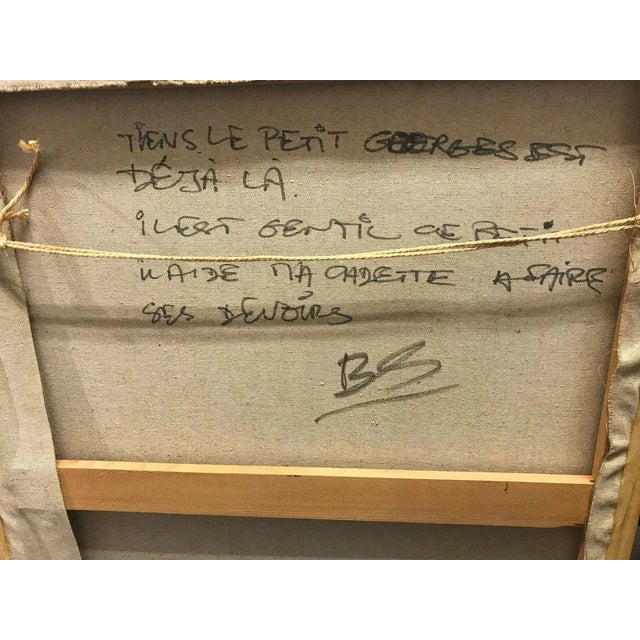 TIENS LE PETIT GEORGES EST
DÉJÀ LÀ.
IL EST GENTIL CE PETIT
IL AIDE MA CADETTE A FAIRE
SES DEVOIRS
BS